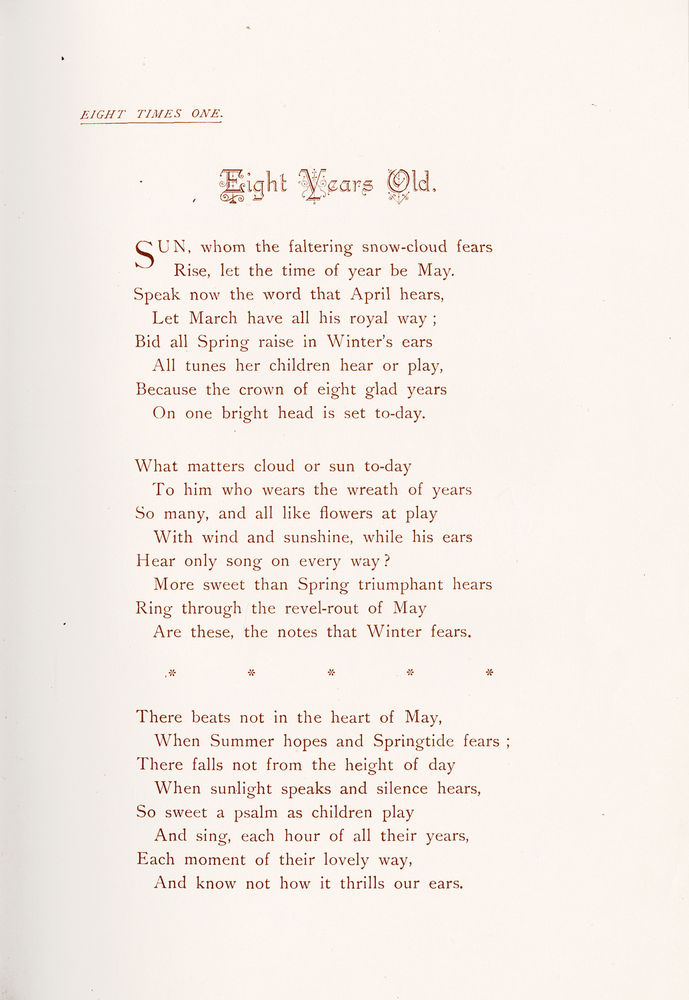 EIGHT TIMES ONE.
Eight Years Old.
SUN, whom the faltering snow-cloud fears
Rise, let the time of year be May.
Speak now the word that April hears,
Let March have all his royal way ;
Bid all Spring raise in Winter's ears
All tunes her children hear or play,
Because the crown of eight glad years
On one bright head is set to-day.
What matters cloud or sun to-day
To him who wears the wreath of years
So many, and all like flowers at play
With wind and sunshine, while his ears
Hear only song on every way ?
More sweet than Spring triumphant hears
Ring through the revel-rout of May
Are these, the notes that Winter fears.
* * * * *
There beats not in the heart of May,
When Summer hopes and Springtide fears ;
There falls not from the height of day
When sunlight speaks and silence hears,
So sweet a psalm as children play
And sing, each hour of all their years,
Each moment of their lovely way,
And know not how it thrills our ears.